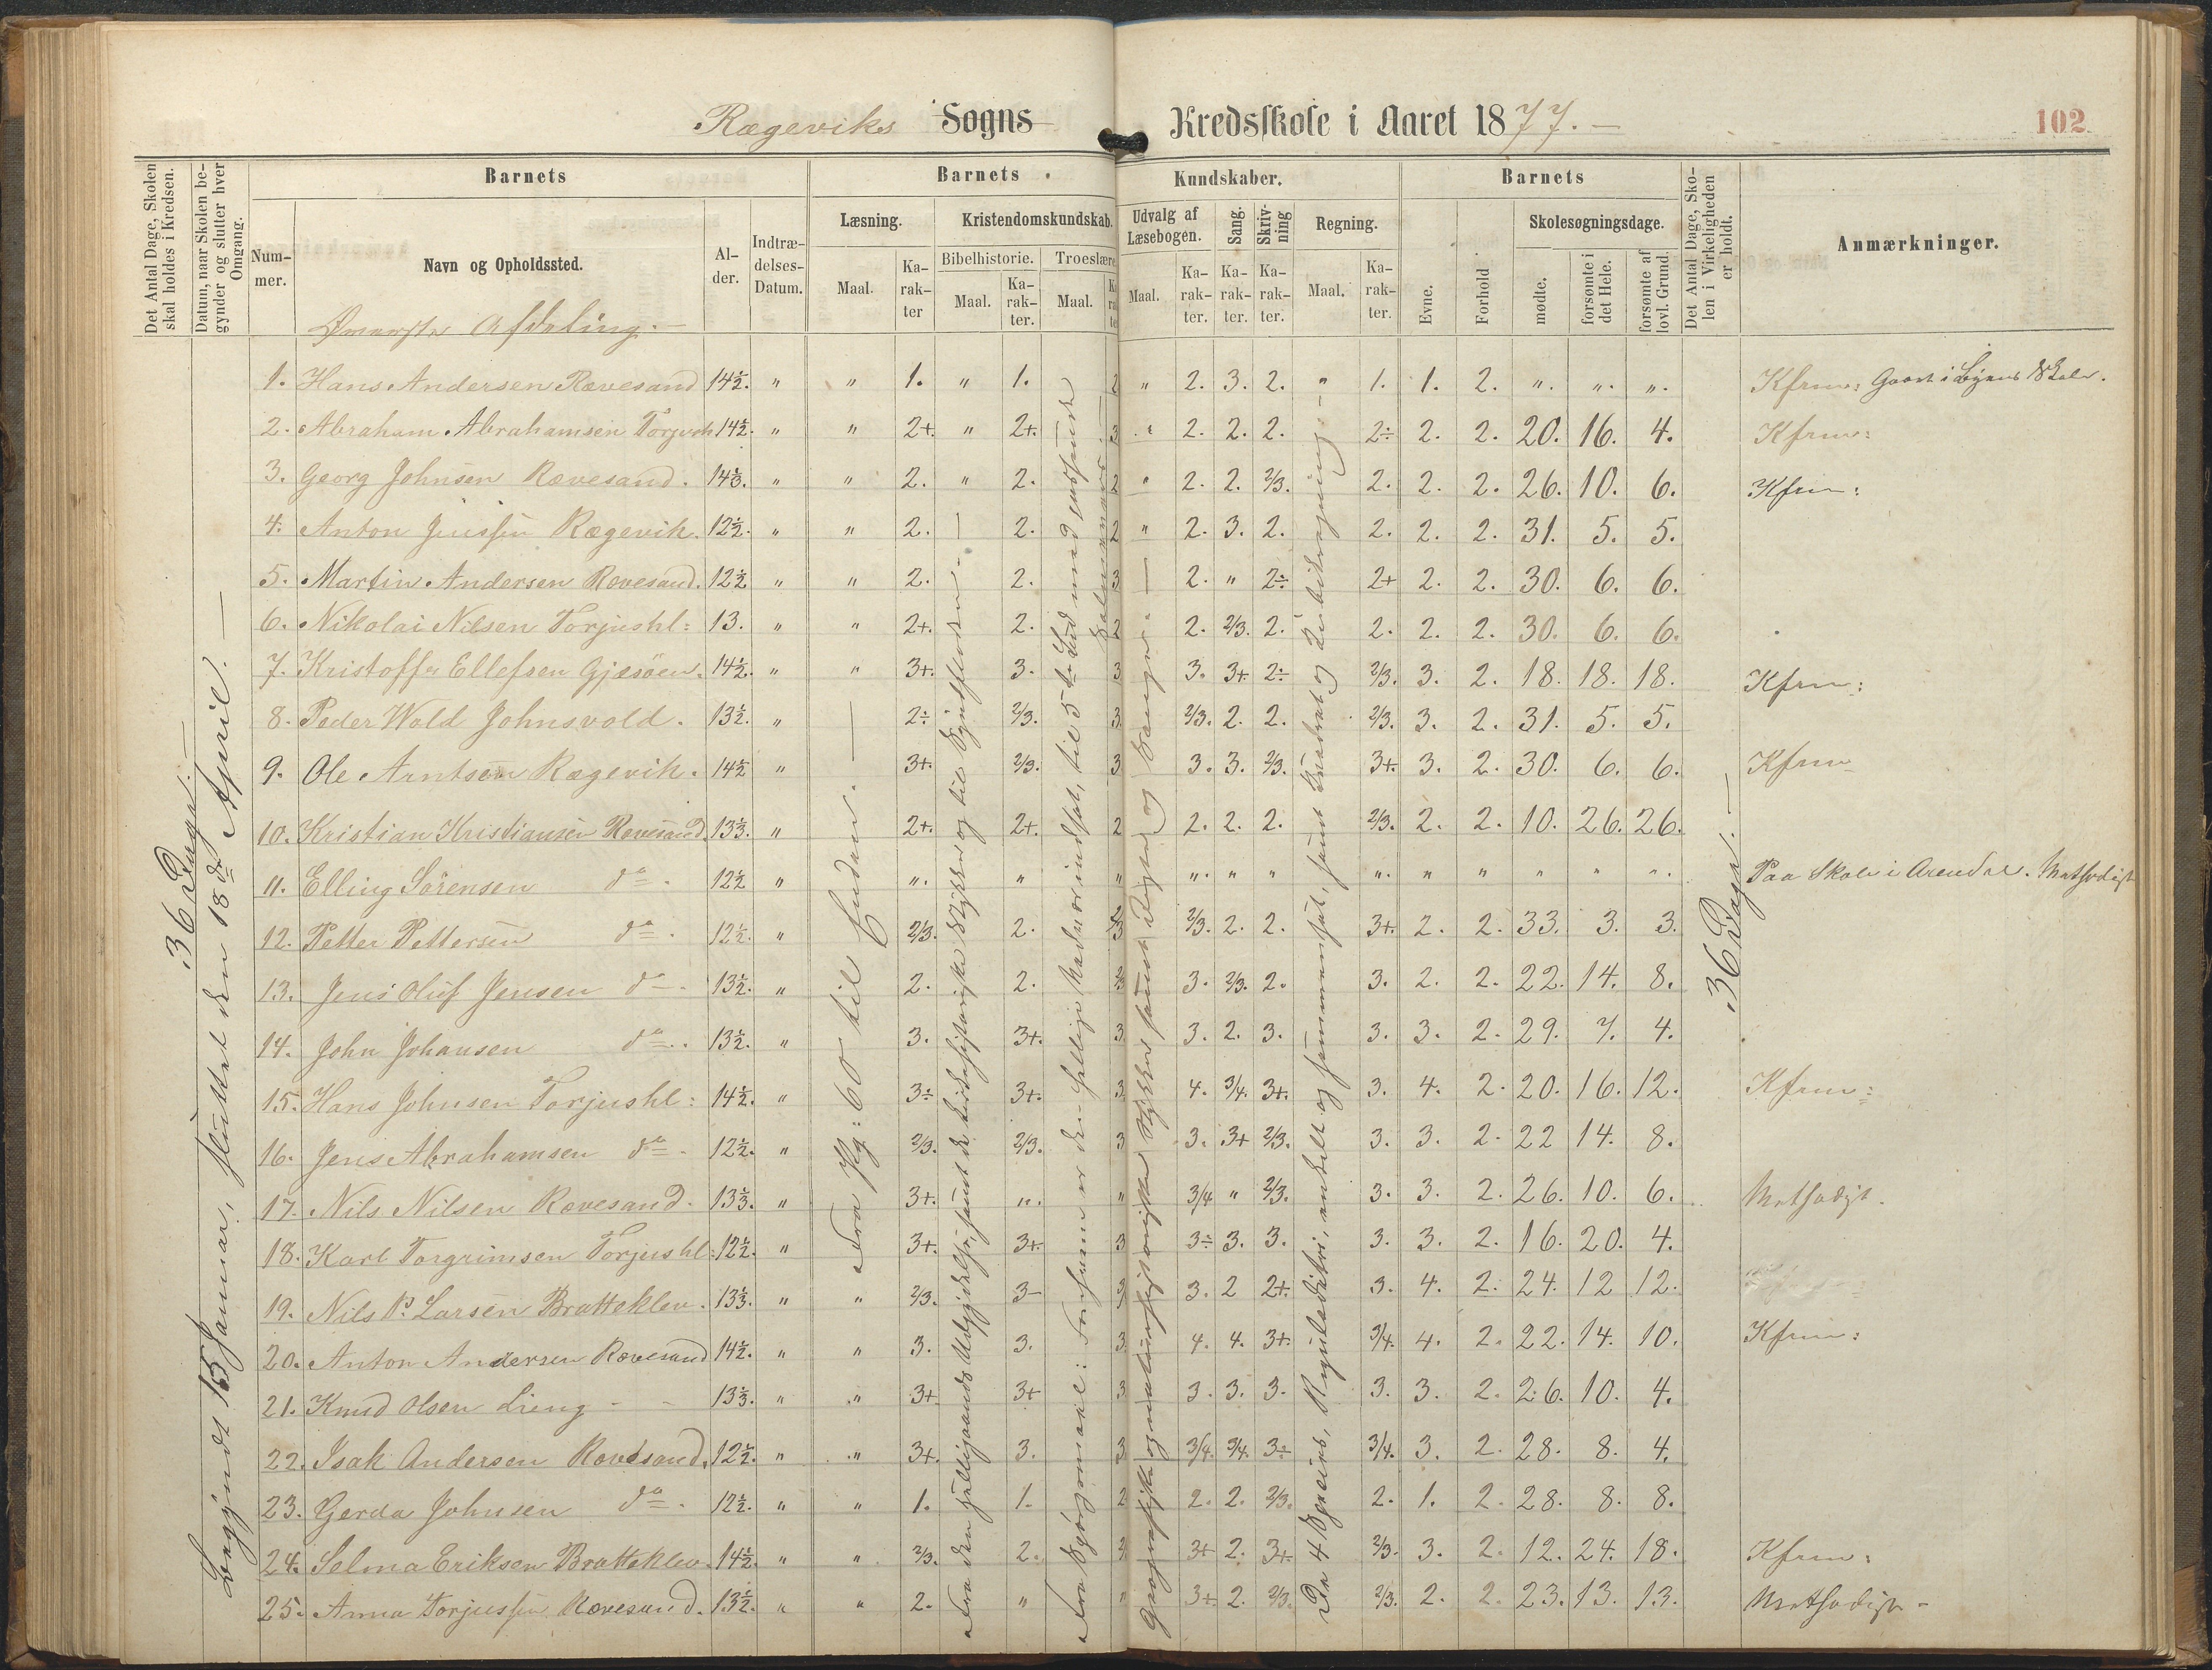 Rægeviks Sogns Kredsskole i Aaret 1877.
102
Det Antal Dage, Skolen skal holdes i Kredsen.
Datum, naar Skolen begynder og slutter hver Omgang.
Barnets
Barnets Kundskaber.
Barnets
Det Antal Dage, Skolen i Virkeligheden er holdt.
Anmærkninger.
Nummer. Navn og Opholdssted. Alder. Indtrædelses-Datum.
Læsning. Kristendomskundskab. Udvalg af Læsebogen. Sang. Skrivning Regning. Skolesøgningsdage.
Bibelhistorie. Troeslære
Maal. Karakter Maal. Karakter. Maal. Maal. Karakter. Karakter. Karakter. Maal. Karakter. Evne. Forhold mødte. forsømte i det Hele. forsømte af lovl. Grund.
Øverste Afdeling.
36 Dage.
Begyndt 15 Januar, sluttet den 18de April.
1. Hans Andersen Rævesand 14½. " " 1. " 1. 2 " 2. 3. 2. " 1. 1. 2. ". ". ". Kfrm: Gaaet i Byens Skole.
2. Abraham Abrahamsen Torjush 14½. " " 2+. " 2+. 3 " 2. 2. 2. 2÷ 2. 2. 20. 16. 4. Kfrm:
3. Georg Johnsen Rævesand. 14⅓. " " 2. " 2. 2 " 2. 2. 2/3. 2. 2. 2. 26. 10. 6. Kfrm:
4. Anton Jenssen Rægevik. 12½. " " 2. 2. 2 " 2. 3. 2. 2. 2. 2. 31. 5. 5.
5. Martin Andersen Rævesand. 12½ " " 2. 2. 3 2. " 2÷ 2+ 2. 2. 30. 6. 6.
6. Nikolai Nilsen Torjushl: 13. " " 2+. 2. 2 2. 2/3. 2. 2. 2. 2. 30. 6. 6.
7. Kristoffer Ellefsen Gjæsöen. 14½. " " 3+. 3. 3 3. 3+ 2÷ 2/3. 3. 2. 18. 18. 18. Kfrm:
8. Peder Wold Johnsvold. 13½. " 2÷ 2/3. 3. 2/3. 2. 2. 2/3. 3. 2. 31. 5. 5.
9. Ole Arntsen Rægevik. 14½ " 3+. 2/3. 3. 3. 3. 2/3. 3+. 3. 2. 30. 6. 6. Kfrm
10. Kristian Kristiansen Rævesand. 13⅓. " 2+. 2+. 2 2. 2. 2. 2/3. 2. 2. 10. 26. 26.
11. Elling Sörensen do. 12½ " ". " " ". " " ". " " " " ". Paa Skole i Arendal. Methodist
12. Petter Pettersen do. 12½. " 2/3. 2. 2/3 2/3. 2. 2. 3+. 2. 2. 33. 3. 3.
13. Jens Oluf Jensen do. 13½. " 2. 2. 2/3 3. 2/3. 2. 3. 2. 2. 22. 14. 8.
14. John Johansen do. 13½. " 3. 3+. 3. 3. 2. 3. 3. 3. 2. 29. 7. 4.
15. Hans Johnsen Torjushl: 14½. " 3÷ 3+. 3. 4. 3/4. 3+. 3. 4. 2. 20. 16. 12. Kfrm:
16. Jens Abrahamsen do. 12½. " 2/3. 2/3. 3 3. 3+ 2/3. 3. 3. 2. 22 14. 8.
17. Nils Nilsen Rævesand. 13⅓. " 3+. ". " 3/4 " 2/3. 3. 3. 2. 26. 10. 6. Methodist.
18. Karl Torgrimsen Torjushl: 12½. " 3+. 3+. 3 3÷ 3. 3. 3. 3. 2. 16. 20. 4.
19. Nils P. Larsen Bratteklev. 13⅓. " " 2/3. 3- 3 3. 2 2+. 3. 4. 2. 24. 12 12.
20. Anton Andersen Rævesand 14½. " " 3. 3. 3. 4. 4. 3+. 3/4. 4. 2. 22. 14. 10. Kfrm:
21. Knud Olsen Lieng 13⅓. " " 3+ 3+ 3. 3. 3. 3. 3. 3. 2. 26. 10. 4.
22. Isak Andersen Rævesand. 12½. " " 3+. 3. 3. 3/4. 3/4. 3÷ 3/4. 3. 2. 28. 8. 4.
23. Gerda Johnsen do. 12½. " " 1. 1. 2 2. 2. 2/3. 2. 1. 2. 28. 8. 8.
24. Selma Eriksen Bratteklev. 14½. " " 2/3. 2. 2 3+ 2. 3+. 2/3. 3. 2. 12. 24. 18. Kfrm:
25. Anna Torjussen Rævesand. 13½. " " 2. " " 3+ 2. 2/3. 2/3. 2. 2. 23. 13. 13. Methodist
Fra Pg: 60 til Enden.
Fra den helligaands Udgydelse, samt de kirkehistoriske Stykker og til Synfloden.
Fra Spörsmaal: Forsum er den hellige Nadver indsat, til 5te Bud med
Geografiske og naturhistoriske Stykker samt Digte og Sange.
De 4 Species, Reguladetri, enkelt og sammensat, samt Kvadrat og Kubikregning.
36 Dage.